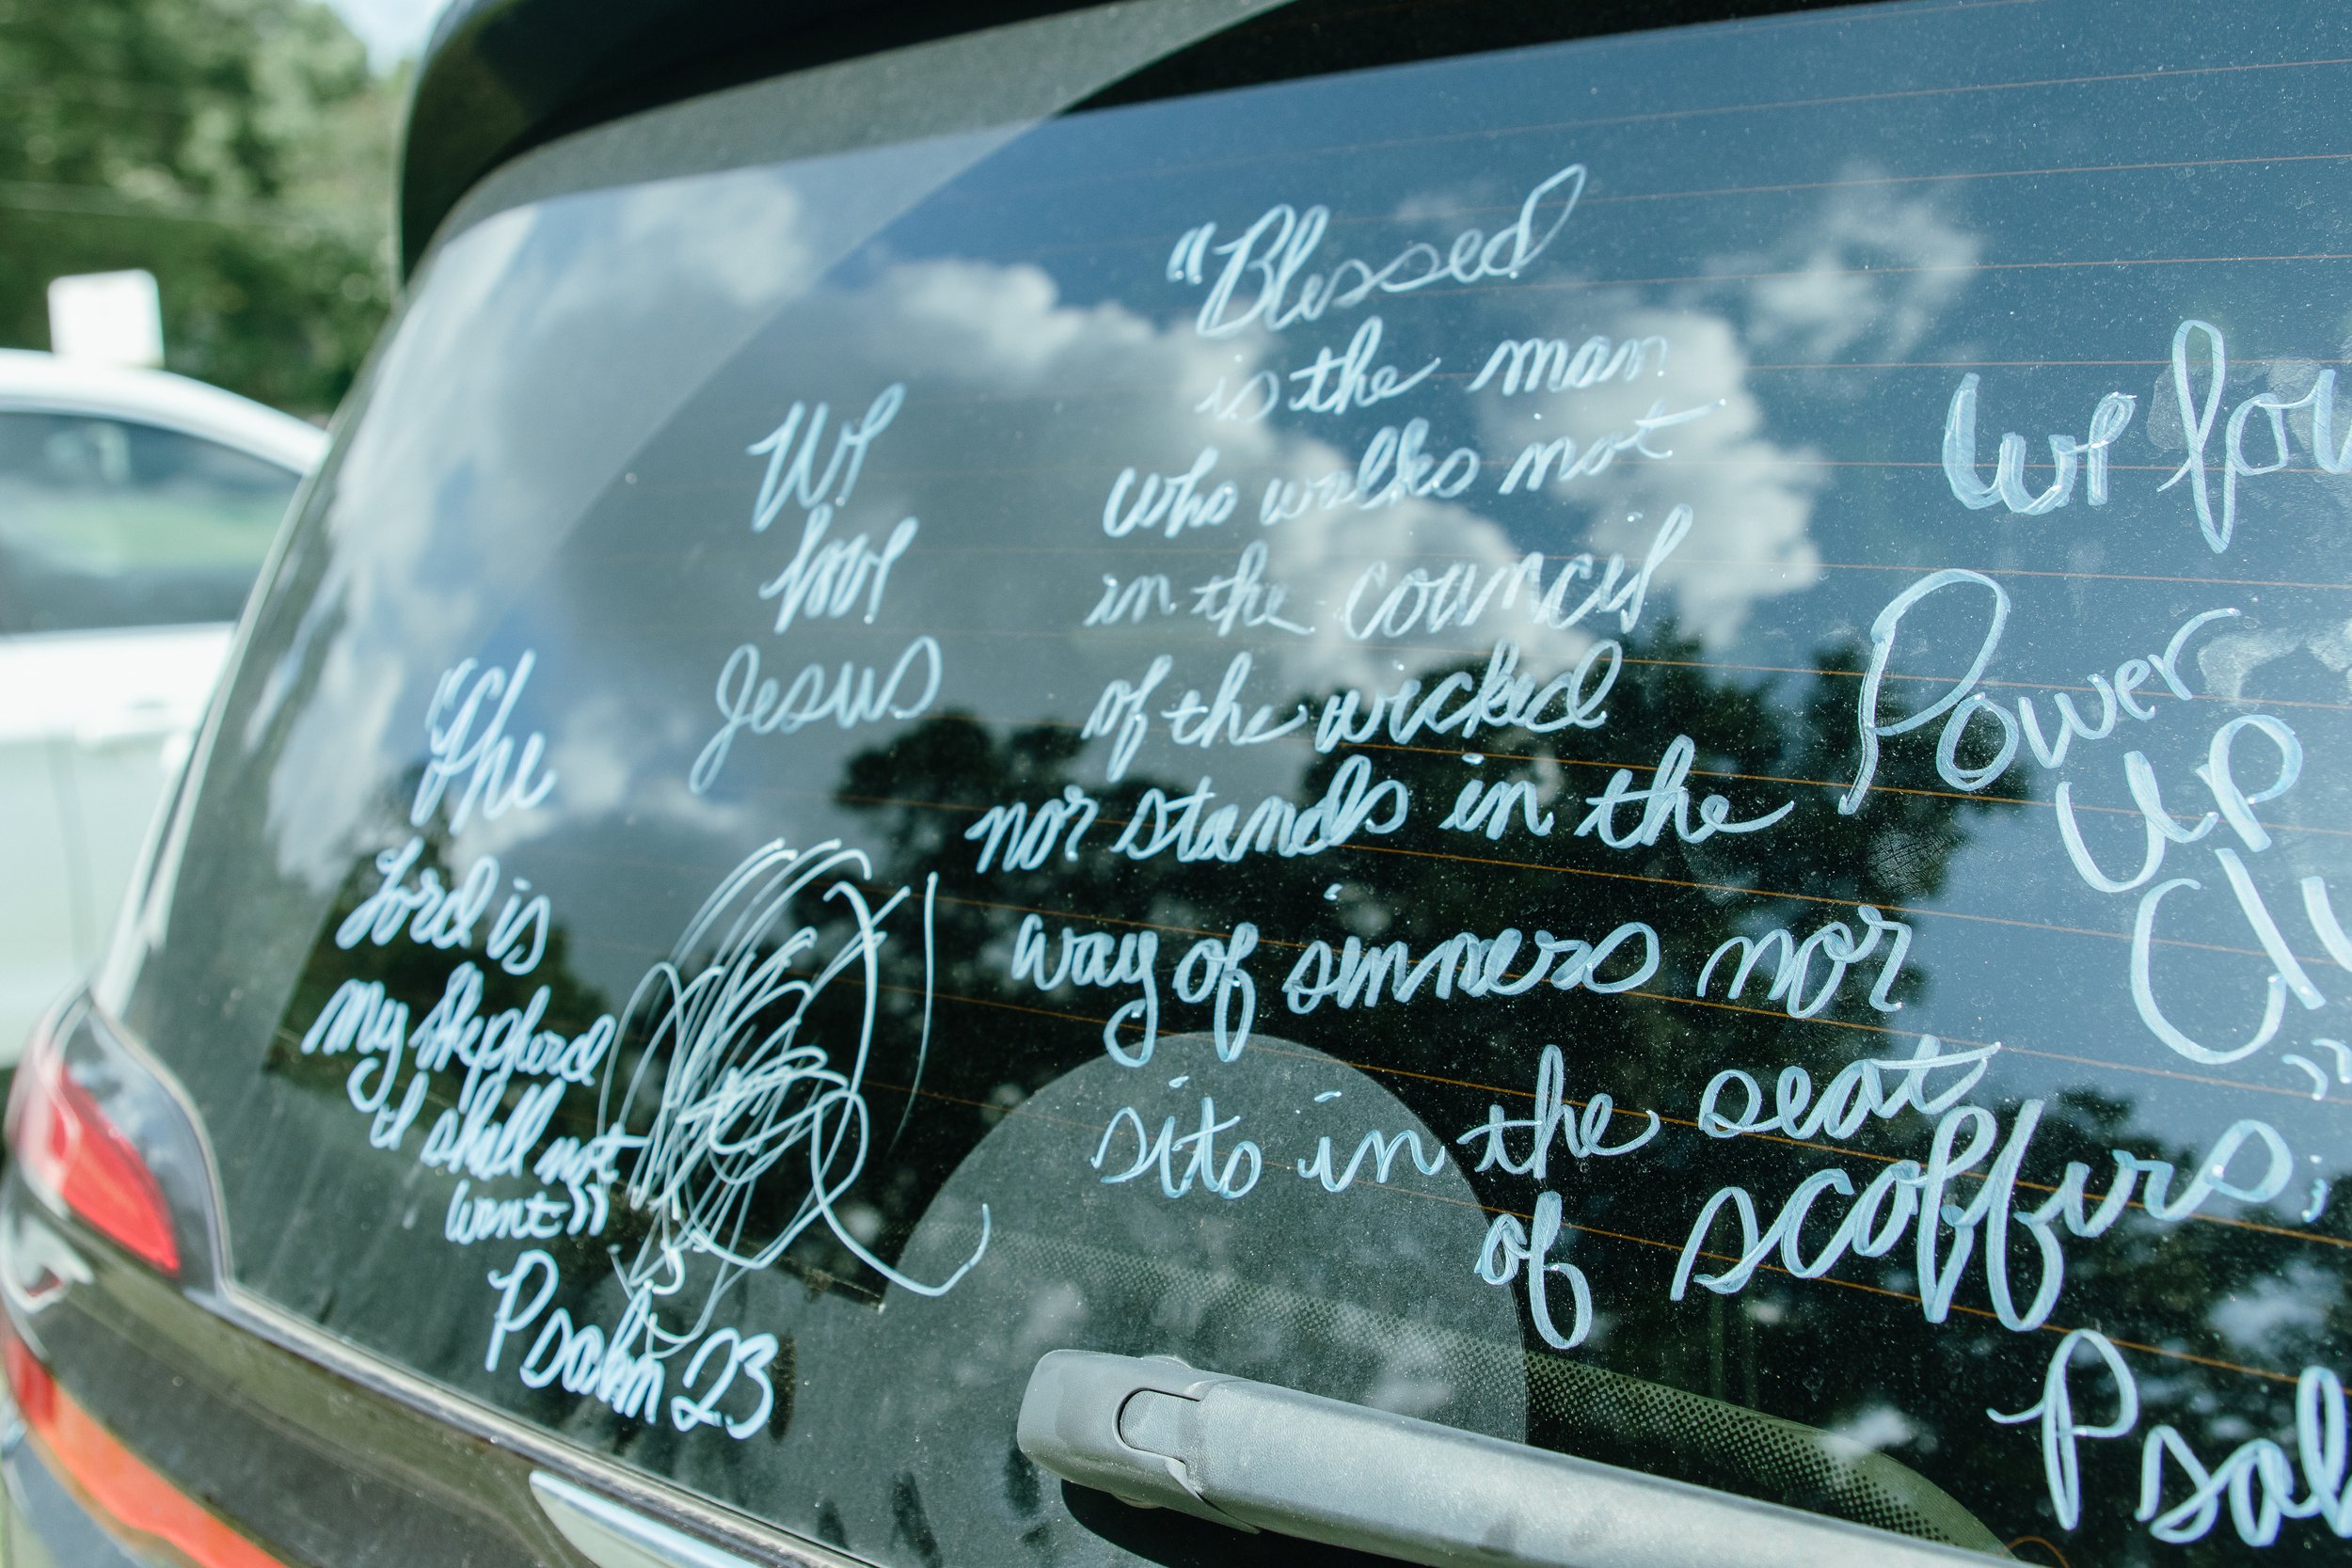 "The
Lord is
my Shepherd
I shall not
want"
Psalm 23
We
love
Jesus
"Blessed
is the man
who walks not
in the council
of the wicked
nor stands in the
way of sinners nor
sits in the seat
of scoffers;
Psal
We
Power
Up